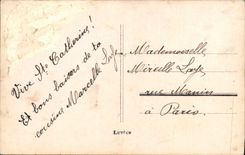 Vive Ste Catherine !
Et bons baisers de ta
cousine Marcelle
Mademoiselle
Mireille
rue Manin
à Paris.